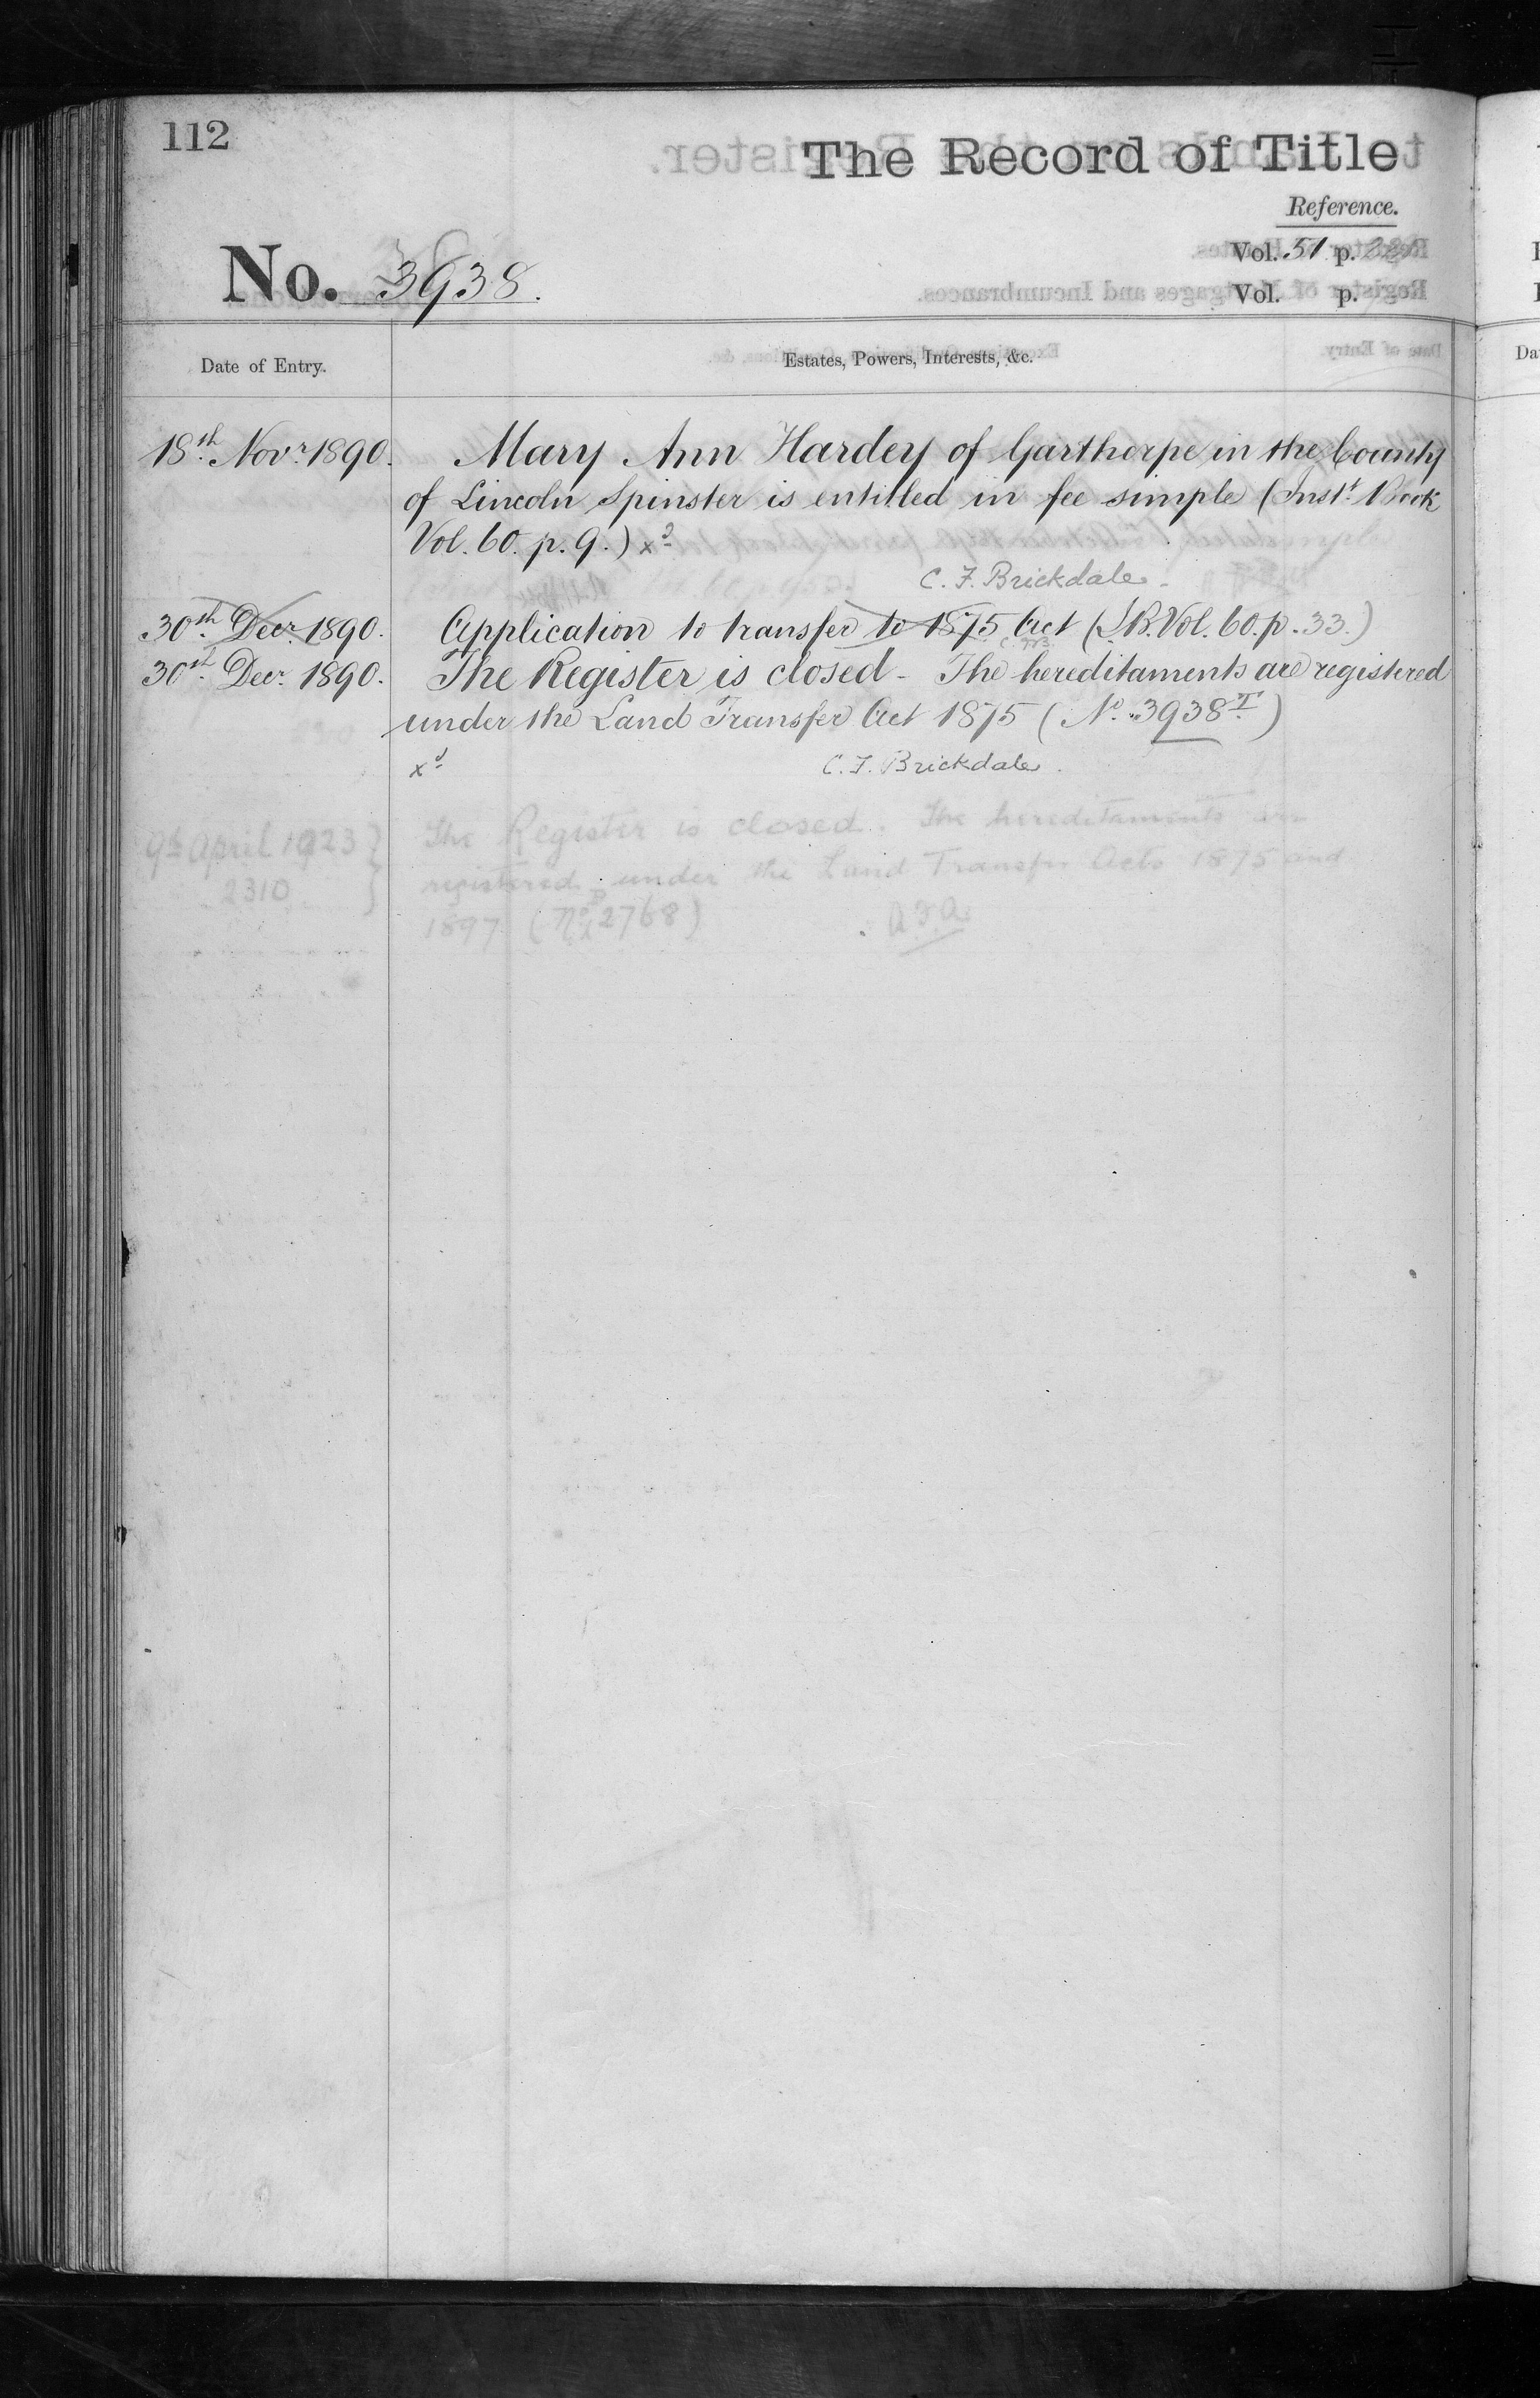 112
The Record of Title
Reference.
Vol. 51 p.
Vol. p.
No. 3938.
Date of Entry.
Estates, Powers, Interests, &c.
18th. Novr. 1890.
Mary Ann Hardey of Garthorpe in the County
of Lincoln Spinster is entitled in fee simple (Inst. Book
Vol. 60. p. 9.) xd
C. F. Brickdale
30th. Decr. 1890.
Application to transfer to 1875 Act (I.B. Vol. 60. p. 33.)
30th. Decr. 1890.
The Register is closed - The hereditaments are registered
under the Land Transfer Act 1875 (No. 3938 I)
xd
C. F. Brickdale
9th April 1923
2310
The Register is closed. The hereditaments are
registered under the Land Transfer Acts 1875 and
1897 (No 2768)